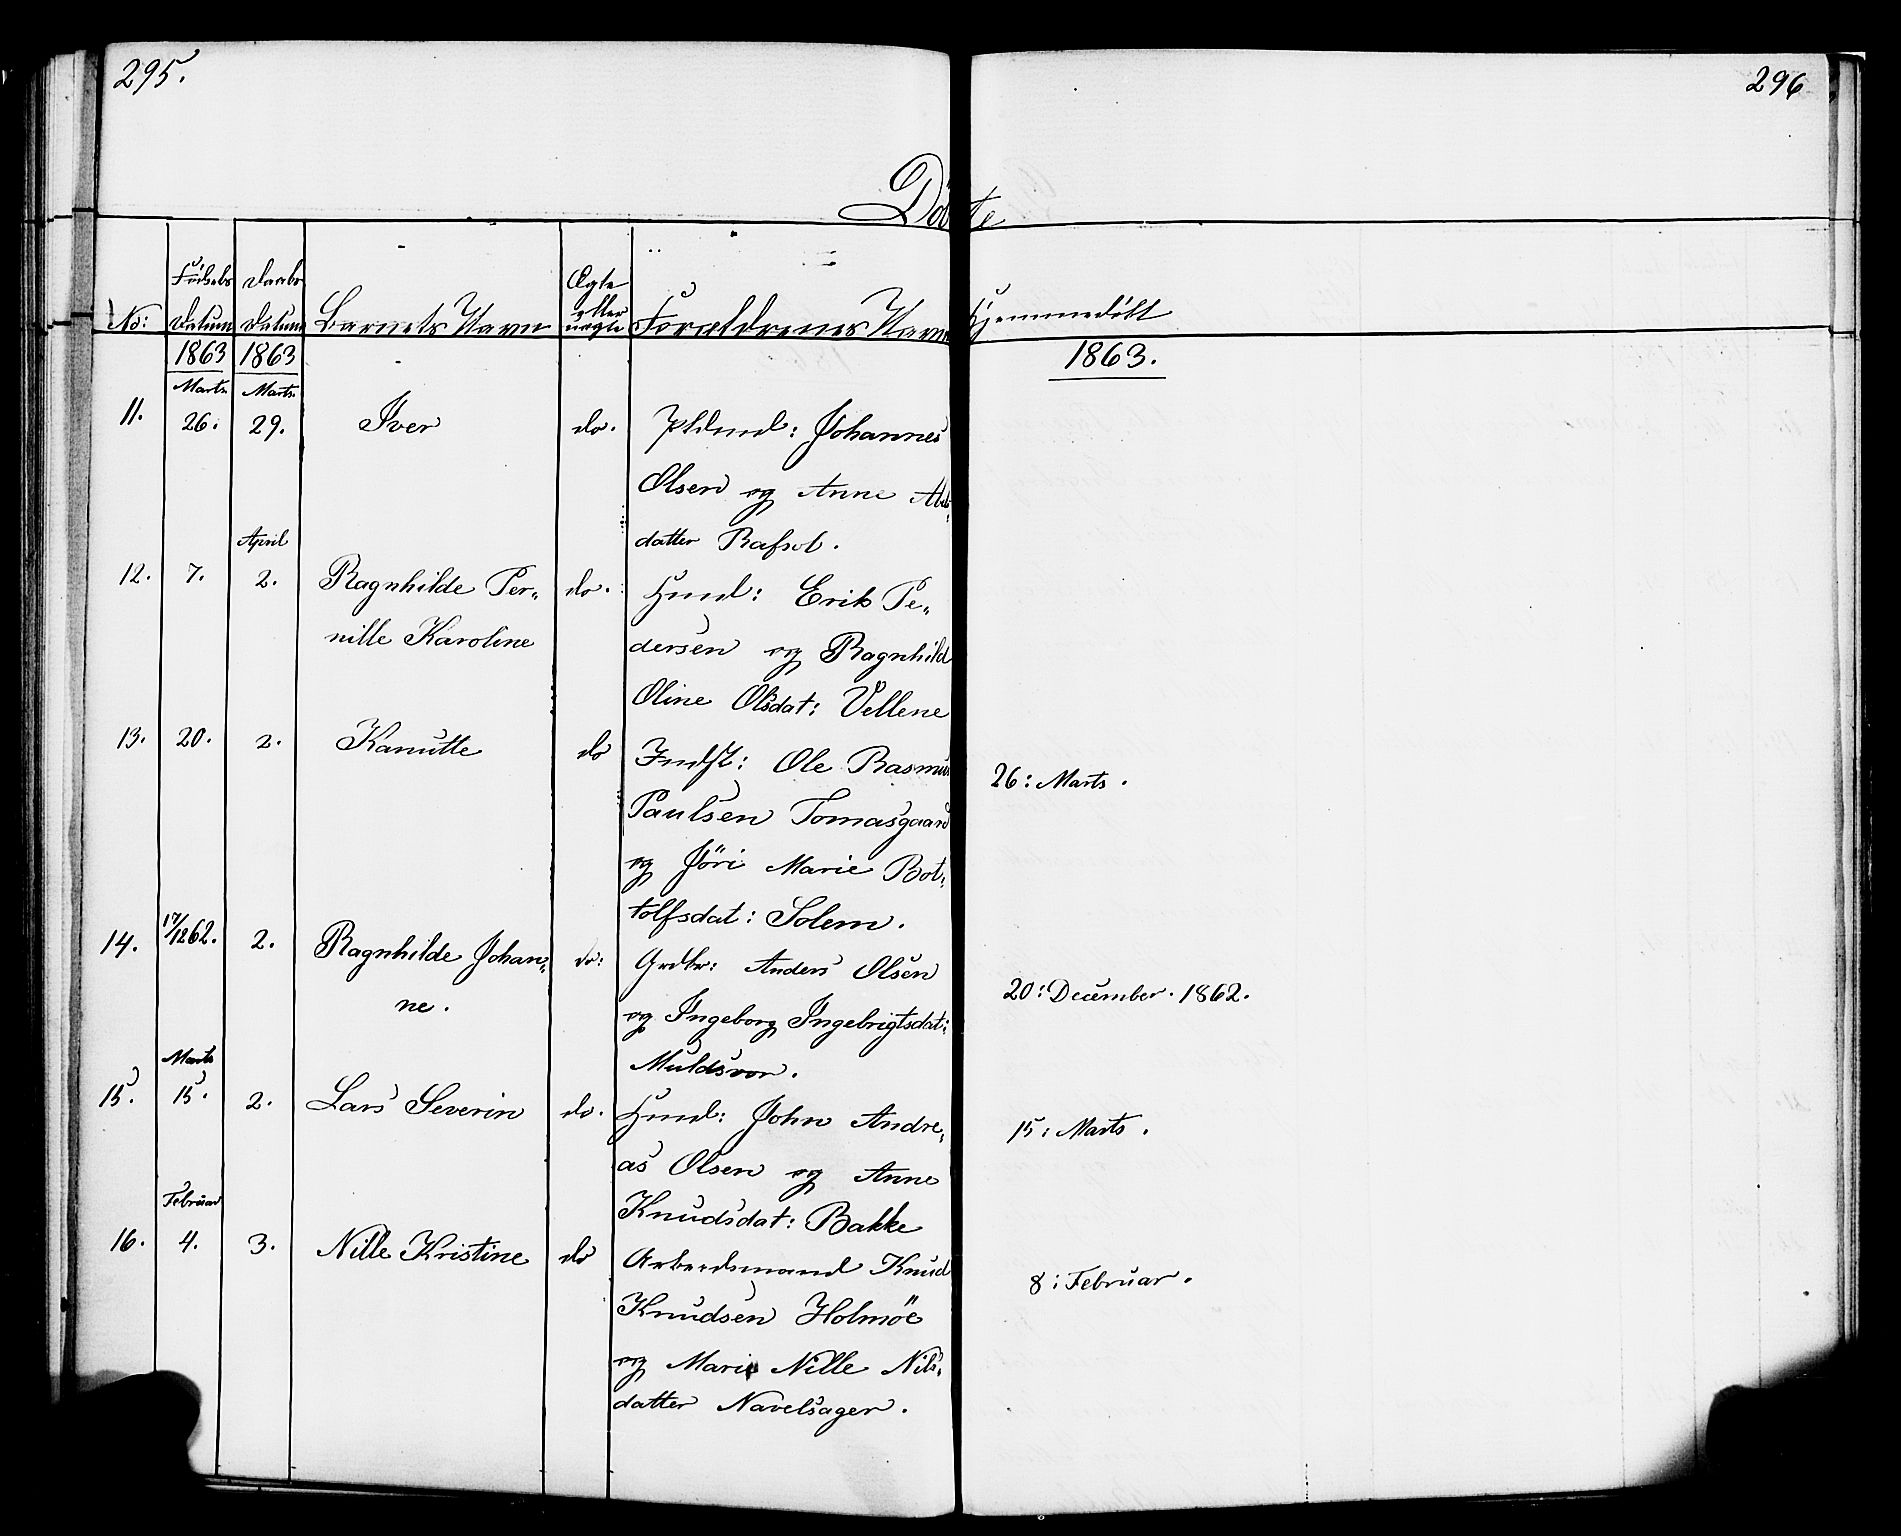 295.
296
Döbte
No:
Födsels
Datum
Daabs
Datum
Barnets Navn
Ægte
eller
uægte
Forældrenes Navn
Hjemmedöbt
1863
1863
1863.
Marts.
Marts.
11.
26.
29.
Iver
do.
Johannes
Olsen og Anne
datter
April
12.
7.
2.
Ragnhilde Per-
nille Karoline
do.
Huusm: Erik Pe-
dersen og Ragnhild
Oline Olsdat: Vellene
13.
20.
2.
Kanutte
do
Indst: Ole Rasmus
Paulsen Tomasgaard
og Jöri Marie Bot-
tolfsdat: Solem.
26: Marts.
14.
17/12 62.
2.
Ragnhilde Johan-
ne.
do:
Grdbr: Anders Olsen
og Ingeborg Ingebrigtsdat:
Muldsvor.
20: December. 1862.
Marts
15.
15.
2.
Lars Severin
do.
Huusm: John Andre-
as Olsen og Anne
Knudsdat: Bakke
15: Marts.
Februar
16.
4.
3.
Nille Kristine
do
Arbeidsmand Knud
Knudsen Holmöe
og Marie Nille Nils-
datter Navelsager.
8: Februar.